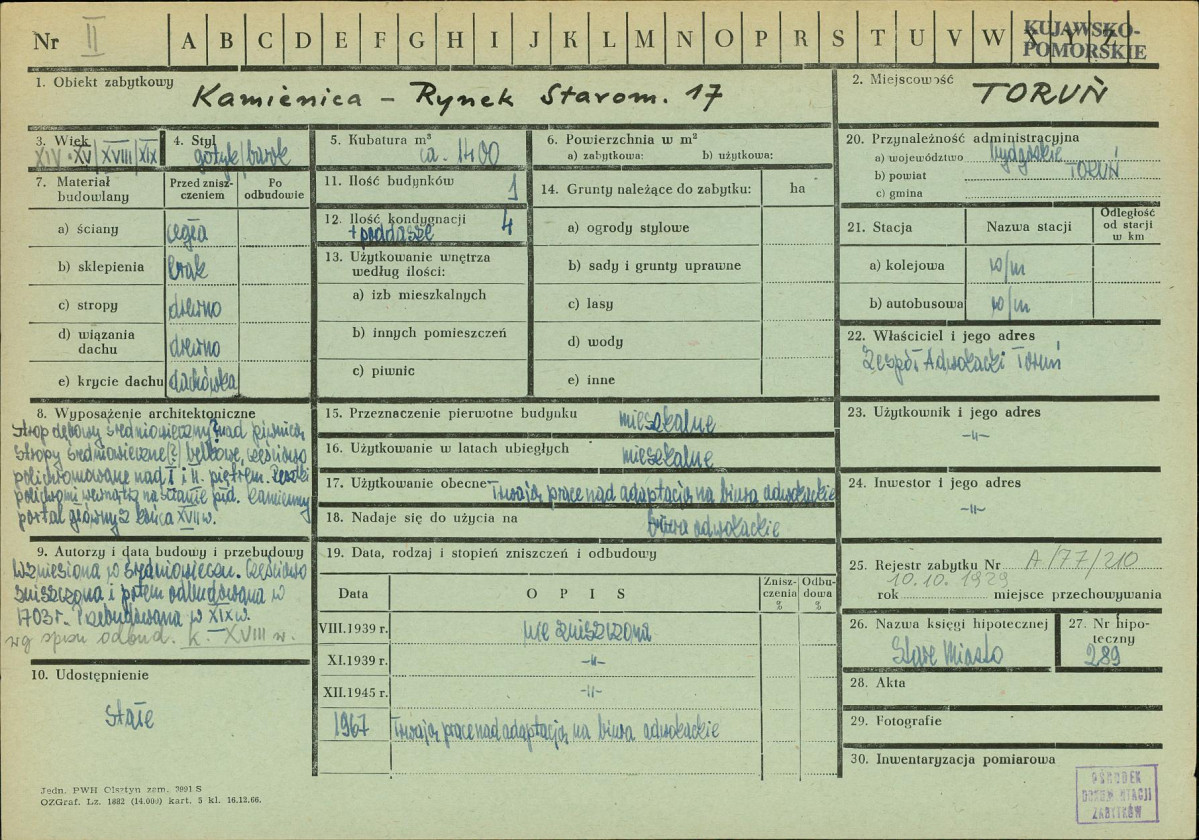 Nr II A B C D E F G H I J K L M N O P R S T U V W X Y Z
KUJAWSKO-
POMORSKIE
1. Obiekt zabytkowy
Kamienica – Rynek Starom. 17
2. Miejscowość
TORUŃ
3. Wiek
XIV-XV/XVIII/XIX
4. Styl
gotyk/barok
5. Kubatura m³
ca. 1400
6. Powierzchnia w m²
a) zabytkowa: b) użytkowa:
7. Materiał budowlany
Przed zniszczeniem
Po odbudowie
a) ściany cegła
b) sklepienia brak
c) stropy drewno
d) wiązania dachu drewno
e) krycie dachu dachówka
8. Wyposażenie architektoniczne
strop dębowy średniowieczny? nad piwnicą,
stropy średniowieczne(?) belkowe, częściowo
polichromowane nad I i II. piętrem. Resztki
polichromii wewnątrz na ścianie płd. Kamienny
portal główny z końca XVII w.
9. Autorzy i data budowy i przebudowy
Wzniesiona w średniowiecz. Częściowo
zniszczona i potem odbudowana w
1703 r. Przebudowana w XIX w.
wg spisu odbud. k. XVIII w.
10. Udostępnienie
Stałe
11. Ilość budynków 1
12. Ilość kondygnacji 4
+ poddasze
13. Użytkowanie wnętrza
według ilości:
a) izb mieszkalnych
b) innych pomieszczeń
c) piwnic
14. Grunty należące do zabytku: ha
a) ogrody stylowe
b) sady i grunty uprawne
c) lasy
d) wody
e) inne
15. Przeznaczenie pierwotne budynku mieszkalne
16. Użytkowanie w latach ubiegłych mieszkalne
17. Użytkowanie obecne Trwają prace nad adaptacją na biura adwokackie
18. Nadaje się do użycia na biura adwokackie
19. Data, rodzaj i stopień zniszczeń i odbudowy
Data OPIS Zniszczenia % Odbudowa %
VIII.1939 r. nie zniszczona
XI.1939 r. -"-
XII.1945 r. -"-
1967 Trwają prace nad adaptacją na biura adwokackie
20. Przynależność administracyjna
a) województwo bydgoskie
b) powiat TORUŃ
c) gmina
21. Stacja Nazwa stacji Odległość od stacji w km
a) kolejowa w/m
b) autobusowa w/m
22. Właściciel i jego adres
Zespół Adwokacki Toruń
23. Użytkownik i jego adres
-"-
24. Inwestor i jego adres
-"-
25. Rejestr zabytku Nr A/77/210
10.10.1929
rok miejsce przechowywania
26. Nazwa księgi hipotecznej
Stare Miasto
27. Nr hipoteczny
289
28. Akta
29. Fotografie
30. Inwentaryzacja pomiarowa
OŚRODEK
DOKUMENTACJI
ZABYTKÓW
Jedn. PWH Olsztyn zam. 2991 S
OZGraf. Lz. 1882 (14.000) kart. 5 kl. 16.12.66.